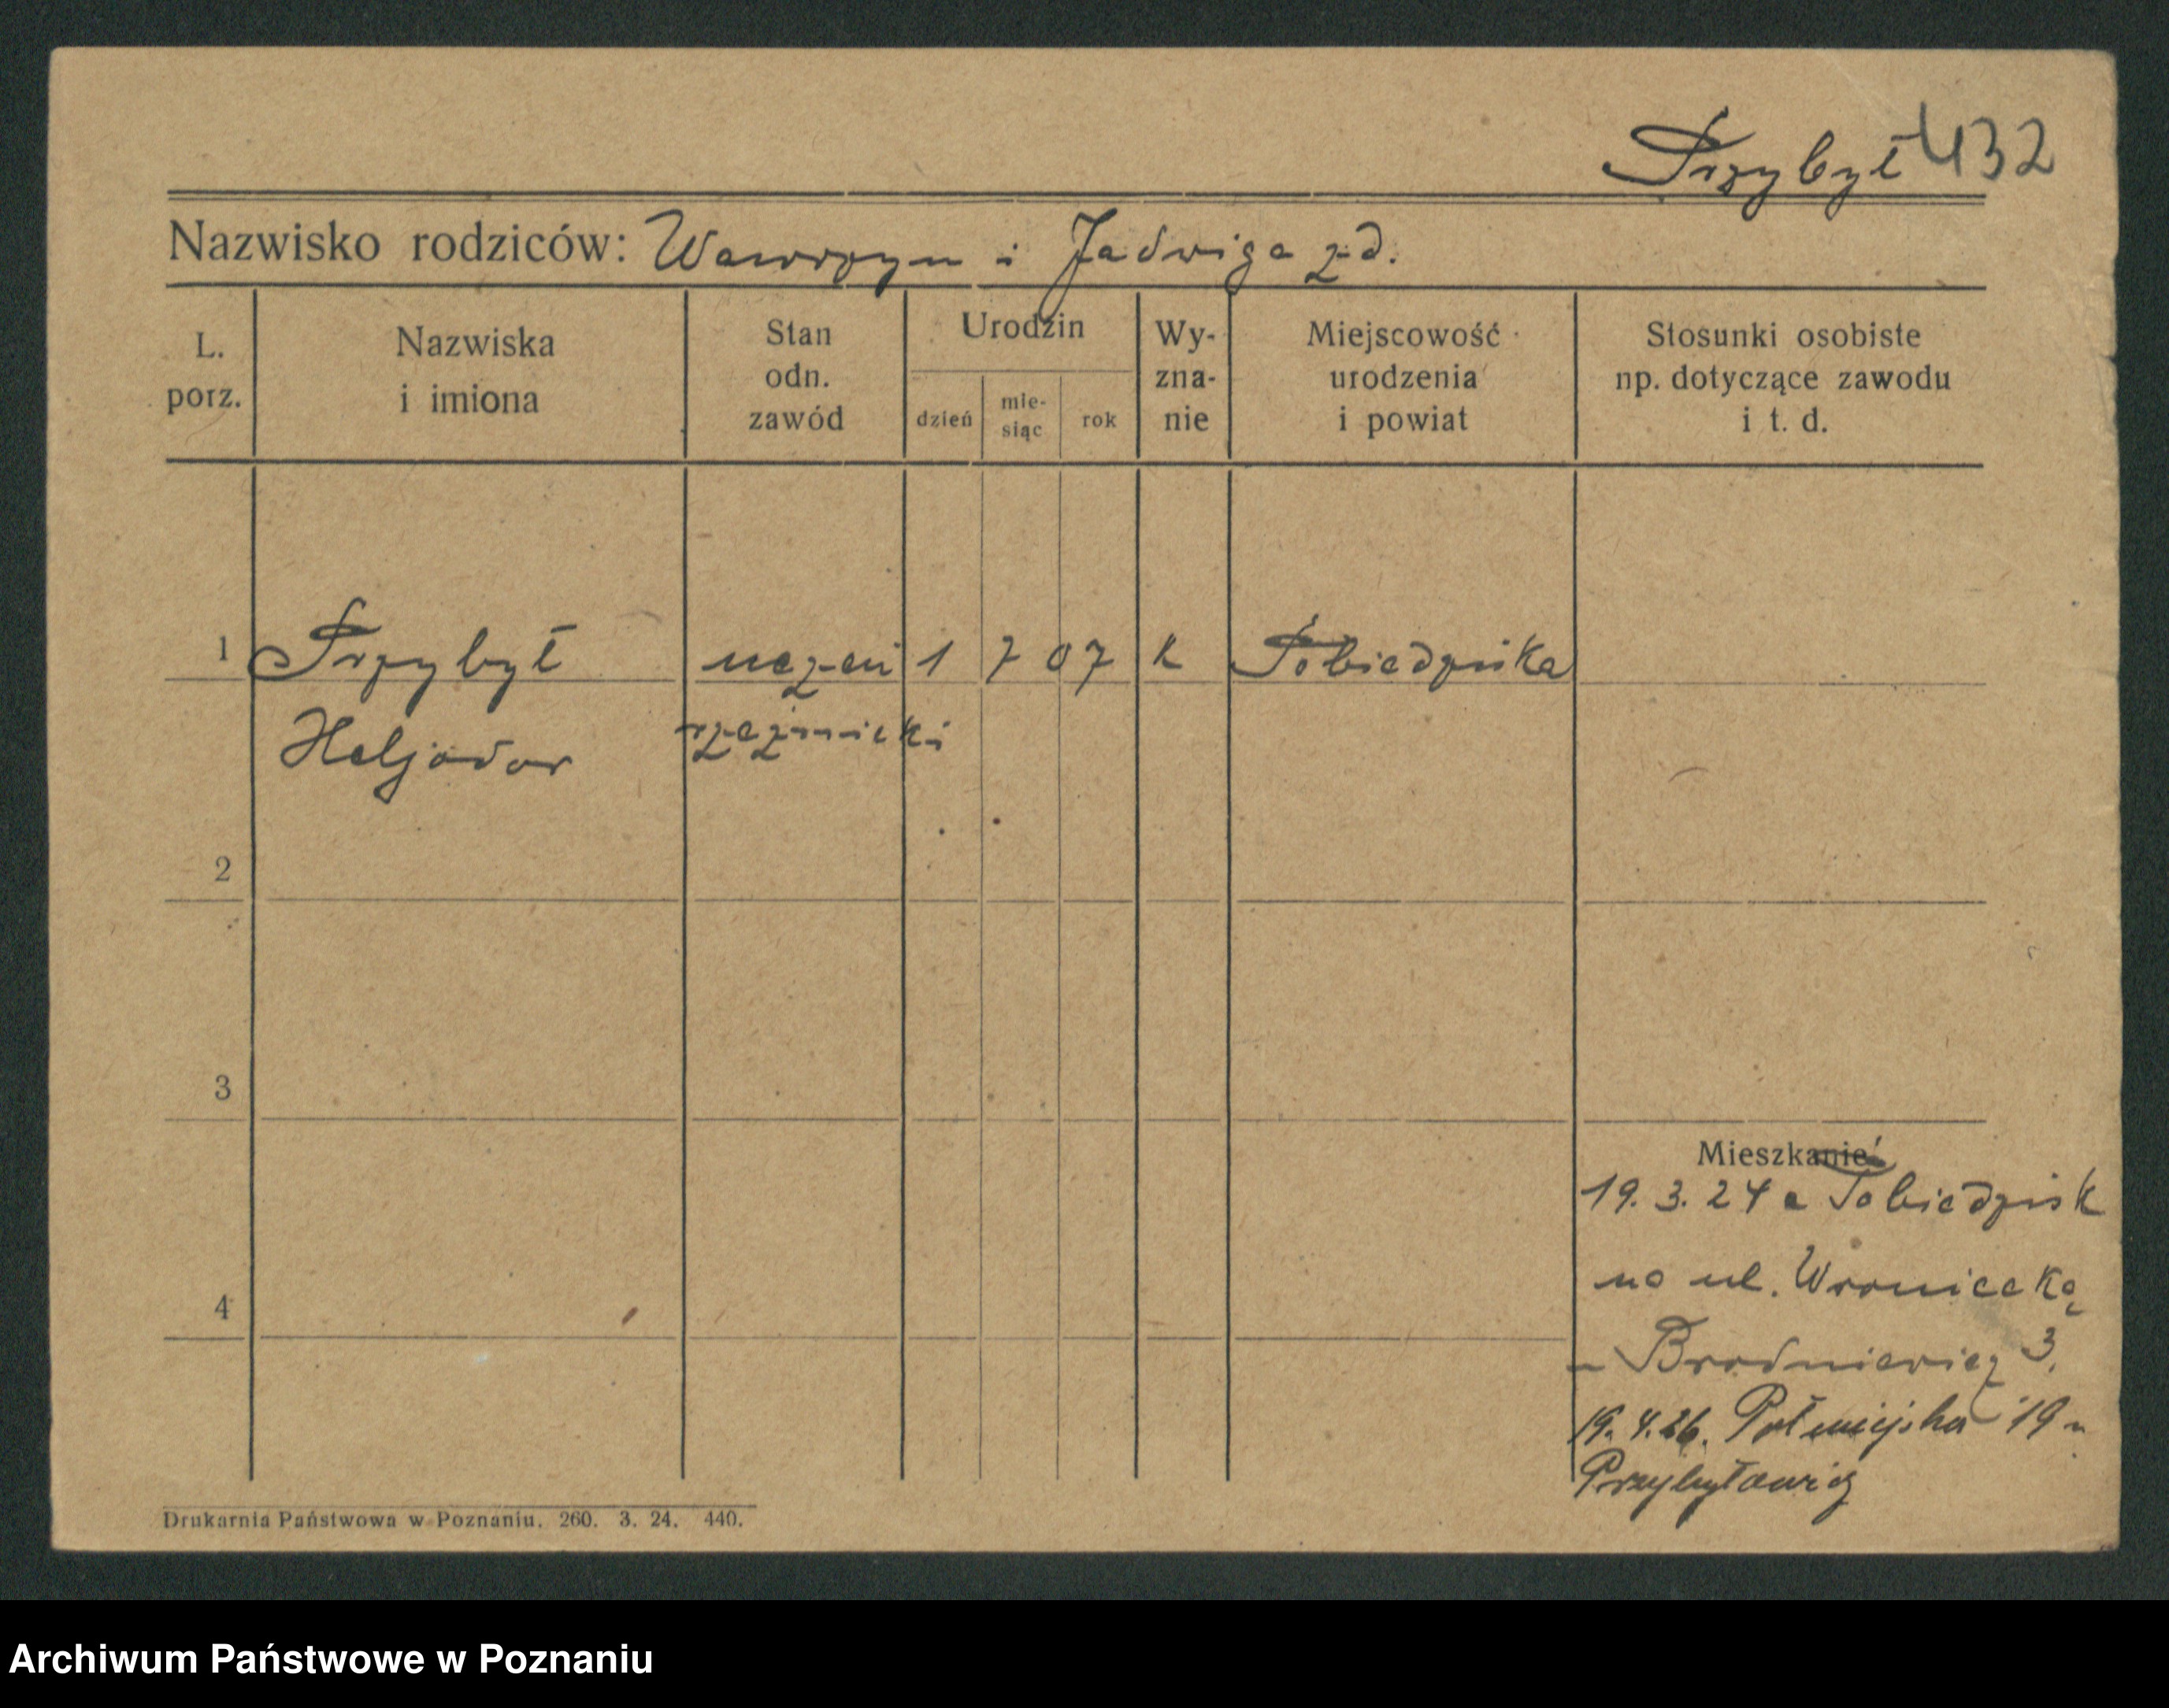 Przybył 432
Nazwisko rodziców: Wawrzyn i Jadwiga z d.
L. porz.
Nazwiska i imiona
Stan odn. zawód
Urodzin
dzień
mie-siąc
rok
Wy-zna-nie
Miejscowość urodzenia i powiat
Stosunki osobiste np. dotyczące zawodu i t. d.
1 Przybył uczeń 1 7 07 k Pobiedziska
Heljodor rzeźnicki
2
3
Mieszkanie
19. 3. 24 z Pobiedzisk
4
na ul. Wroniecką
u Brodniewicz 3.
19. 4. 26. Półwiejska 19 u
Przybyłowicz
Drukarnia Państwowa w Poznaniu. 260. 3. 24. 440.
Archiwum Państwowe w Poznaniu